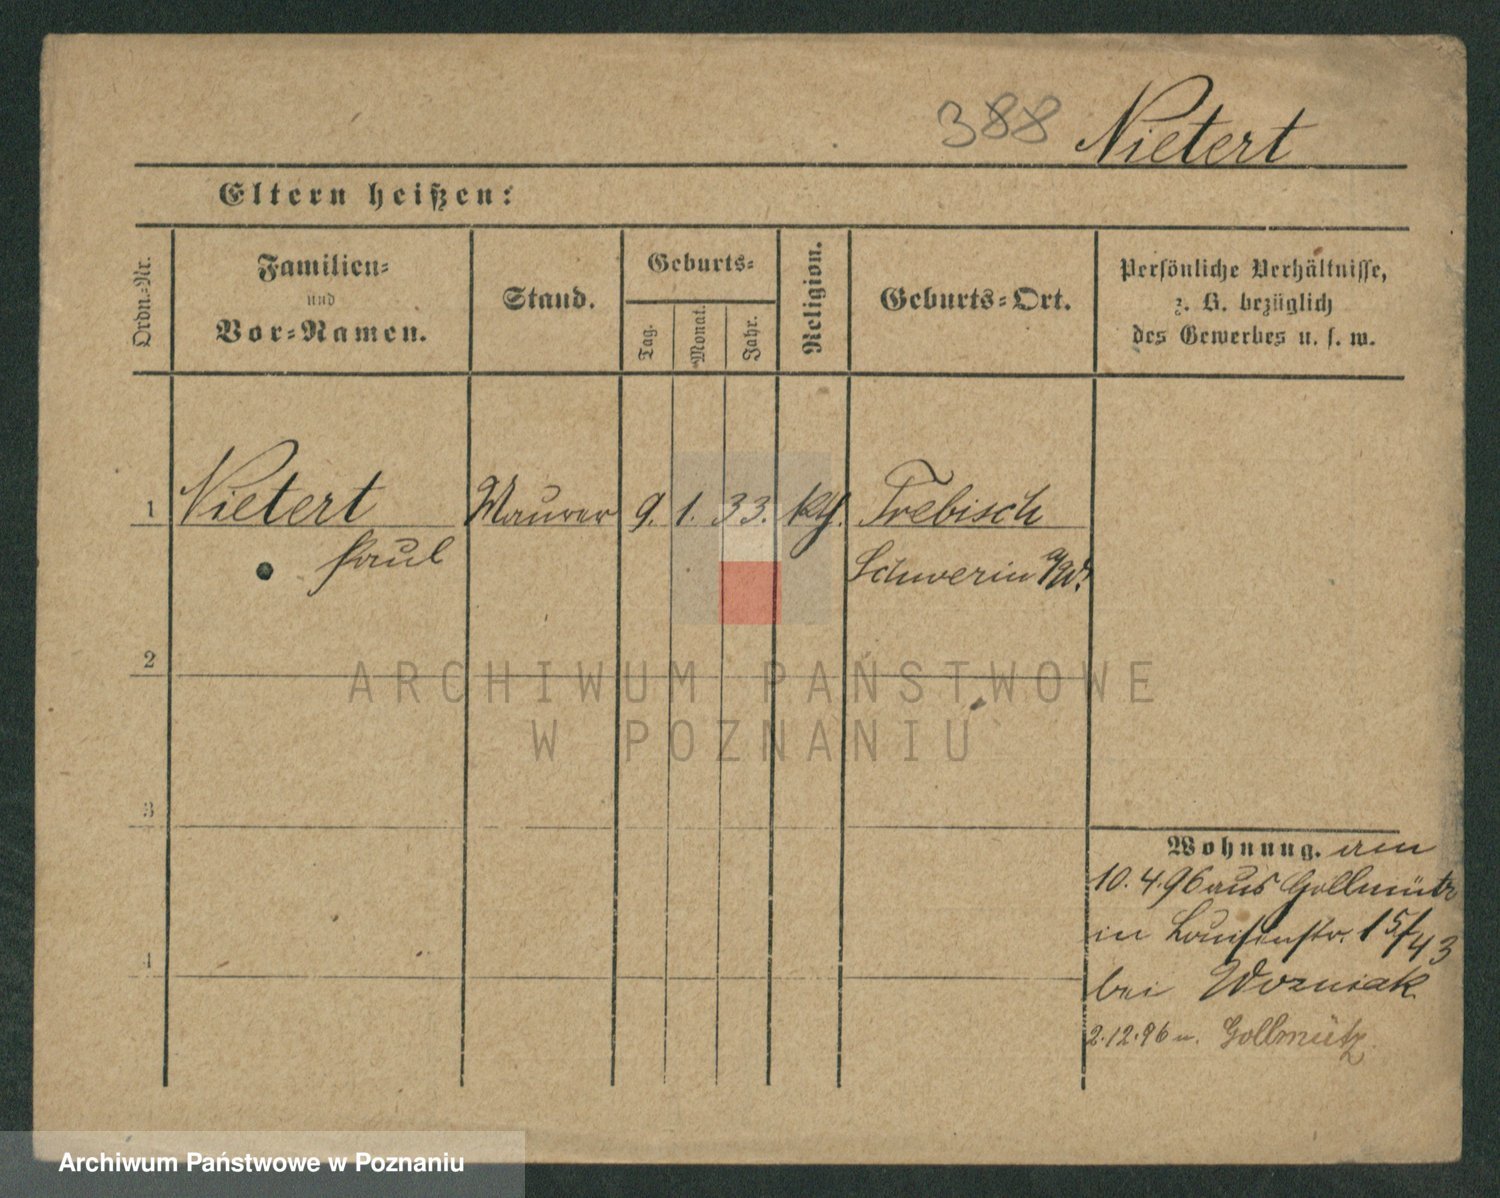 388 Nietert
Eltern heißen:
Ordn.-Nr.
Familien-
und
Vor-Namen.
Stand.
Geburts-
Tag.
Monat.
Jahr.
Religion.
Geburts-Ort.
Persönliche Verhältnisse,
z. B. bezüglich
des Gewerbes u. s. w.
1 Nietert Maurer 9. 1. 33. kth. Trebisch
Paul Schwerin a/W.
2
3
4
Wohnung. am
10.4.96 aus Gollmütz
in Louisenstr. 15/43
bei Wozniak
2.12.96 n. Gollmütz.
ARCHIWUM PAŃSTWOWE
W POZNANIU
Archiwum Państwowe w Poznaniu